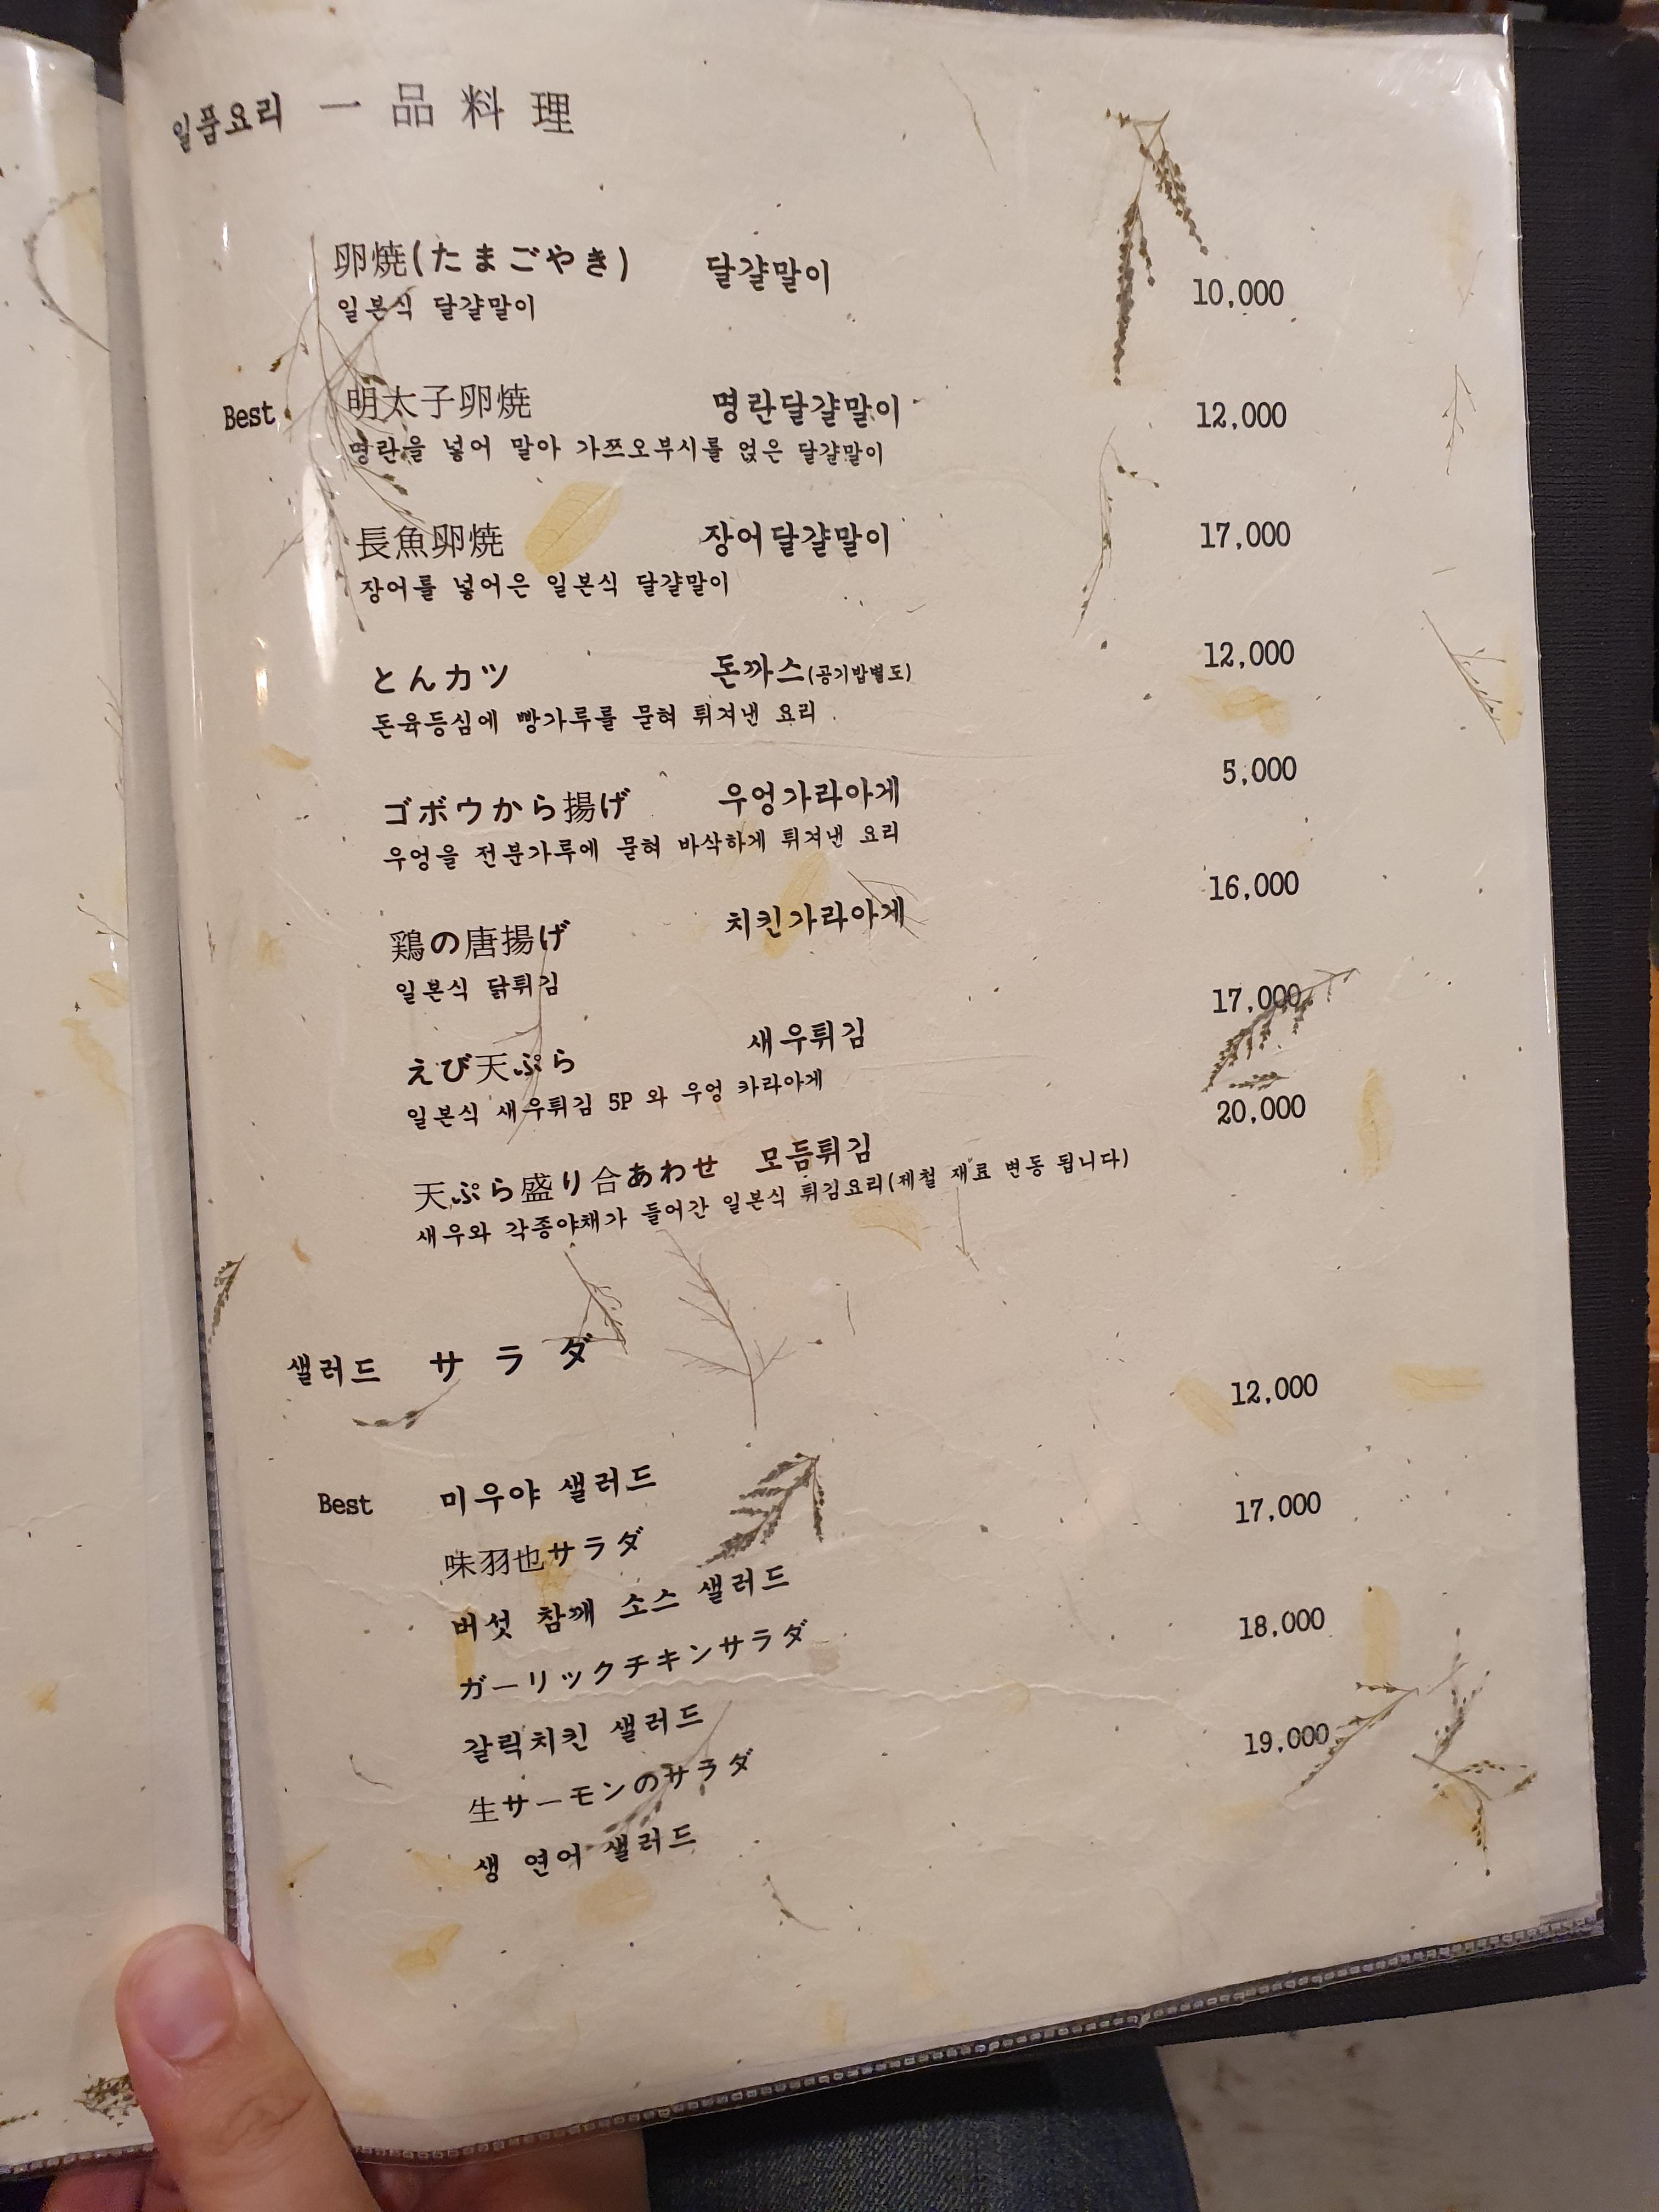 일품요리 一品料理
卵焼(たまごやき) 달걀말이 10,000
일본식 달걀말이
Best 明太子卵焼 명란달걀말이 12,000
명란을 넣어 말아 가쯔오부시를 얹은 달걀말이
長魚卵焼 장어달걀말이 17,000
장어를 넣어은 일본식 달걀말이
とんカツ 돈까스(공기밥별도) 12,000
돈육등심에 빵가루를 묻혀 튀겨낸 요리
ゴボウから揚げ 우엉가라아게 5,000
우엉을 전분가루에 묻혀 바삭하게 튀겨낸 요리
鶏の唐揚げ 치킨가라아게 16,000
일본식 닭튀김
えび天ぷら 새우튀김 17,000
일본식 새우튀김 5P 와 우엉 카라아게
天ぷら盛り合あわせ 모듬튀김 20,000
새우와 각종야채가 들어간 일본식 튀김요리(제철 재료 변동 됩니다)
샐러드 サラダ
12,000
Best 미우야 샐러드
17,000
味羽也サラダ
버섯 참깨 소스 샐러드
18,000
ガーリックチキンサラダ
갈릭치킨 샐러드
19,000
生サーモンのサラダ
생 연어 샐러드